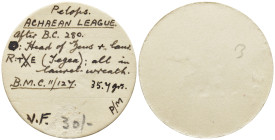 Pelops.
ACHAEAN LEAGUE.
After B.C. 280.
O: Head of Zeus + laur.
R-E (Tegea); all in
laurel-wreath.
B.M.C. 11/127. 35.4 gr.
V.F. 30/- P/M
3